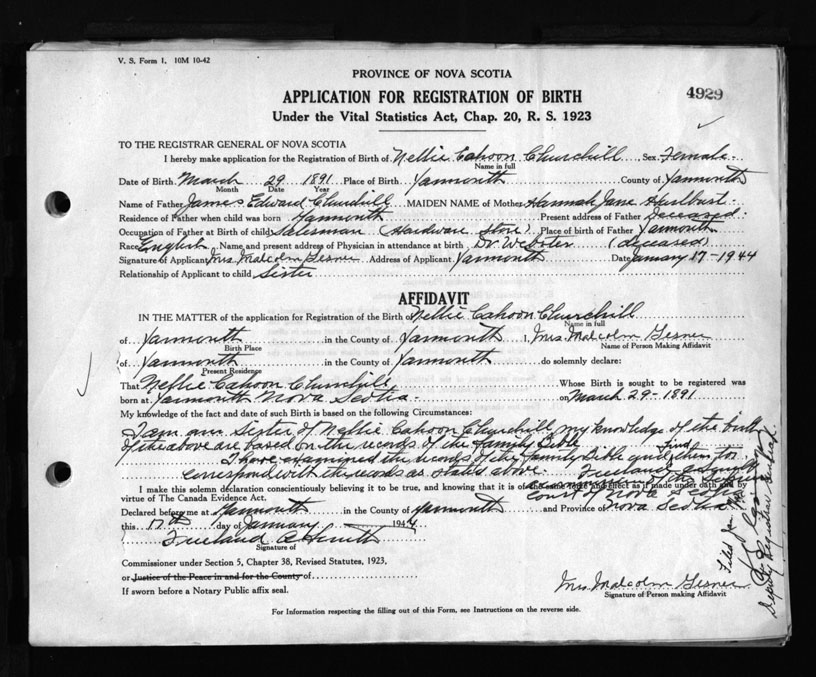 V. S. Form 1. 10M 10-42
PROVINCE OF NOVA SCOTIA
4929
APPLICATION FOR REGISTRATION OF BIRTH
Under the Vital Statistics Act, Chap. 20, R. S. 1923
TO THE REGISTRAR GENERAL OF NOVA SCOTIA
I hereby make application for the Registration of Birth of Nellie Cahoon Churchill Sex Female
Name in full
Date of Birth March 29 1891 Place of Birth Yarmouth County of Yarmouth
Month Date Year
Name of Father James Edward Churchill MAIDEN NAME of Mother Hannah Jane Hurlburt
Residence of Father when child was born Yarmouth Present address of Father Deceased
Occupation of Father at Birth of child Salesman (Hardware Store) Place of birth of Father Yarmouth
Race English Name and present address of Physician in attendance at birth Dr. Webster (deceased)
Signature of Applicant Mrs. Malcolm Gesner Address of Applicant Yarmouth Date January 17-1944
Relationship of Applicant to child Sister
AFFIDAVIT
IN THE MATTER of the application for Registration of the Birth of Nellie Cahoon Churchill
Name in full
of Yarmouth in the County of Yarmouth I, Mrs. Malcolm Gesner
Birth Place Name of Person Making Affidavit
of Yarmouth in the County of Yarmouth do solemnly declare:
Present Residence
That Nellie Cahoon Churchill Whose Birth is sought to be registered was
born at Yarmouth Nova Scotia on March 29-1891
My knowledge of the fact and date of such Birth is based on the following Circumstances:
I am a Sister of Nellie Cahoon Churchill my knowledge of the birth
of the above are based on the records of the family Bible
I have examined the records of the family Bible and find them to
correspond with the records as stated above. Freeland
I make this solemn declaration conscientiously believing it to be true, and knowing that it is of the same force and effect as if made under oath and by
virtue of The Canada Evidence Act. Court of Nova Scotia
Declared before me at Yarmouth in the County of Yarmouth and Province of Nova Scotia
this 17th day of January 1944
Freeland Smith
Signature of
Commissioner under Section 5, Chapter 38, Revised Statutes, 1923,
or Justice of the Peace in and for the County of
If sworn before a Notary Public affix seal.
Mrs. Malcolm Gesner
Signature of Person making Affidavit
For Information respecting the filling out of this Form, see Instructions on the reverse side.
Filed Jan
Deputy Registrar General